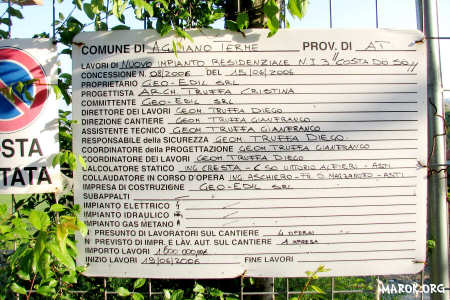 COMUNE DI AGLIANO TERME PROV. DI AT
LAVORI DI NUOVO IMPIANTO RESIDENZIALE N.I 3 "COSTA DO SÔ"
CONCESSIONE N. 08/2006 DEL 15/06/2006
PROPRIETARIO GEO-EDIL SRL
PROGETTISTA ARCH. TRUFFA CRISTINA
COMMITTENTE GEO-EDIL SRL
DIRETTORE DEI LAVORI GEOM. TRUFFA DIEGO
DIREZIONE CANTIERE GEOM. TRUFFA GIANFRANCO
ASSISTENTE TECNICO GEOM. TRUFFA GIANFRANCO
RESPONSABILE della SICUREZZA GEOM. TRUFFA DIEGO
COORDINATORE della PROGETTAZIONE GEOM. TRUFFA GIANFRANCO
COORDINATORE dei LAVORI GEOM. TRUFFA DIEGO
CALCOLATORE STATICO ING. CRESTA - C.SO VITTORIO ALFIERI - ASTI
COLLAUDATORE IN CORSO D'OPERA ING. ASCHIERO
IMPRESA DI COSTRUZIONE GEO-EDIL SRL
SUBAPPALTI
IMPIANTO ELETTRICO
IMPIANTO IDRAULICO
IMPIANTO GAS METANO
N. PRESUNTO DI LAVORATORI SUL CANTIERE 4 OPERAI
N. PREVISTO DI IMPR. E LAV. AUT. SUL CANTIERE 1 IMPRESA
IMPORTO LAVORI 1'800'000,00
INIZIO LAVORI 19/06/2006 FINE LAVORI
OSTA
TATA
MAROK.ORG